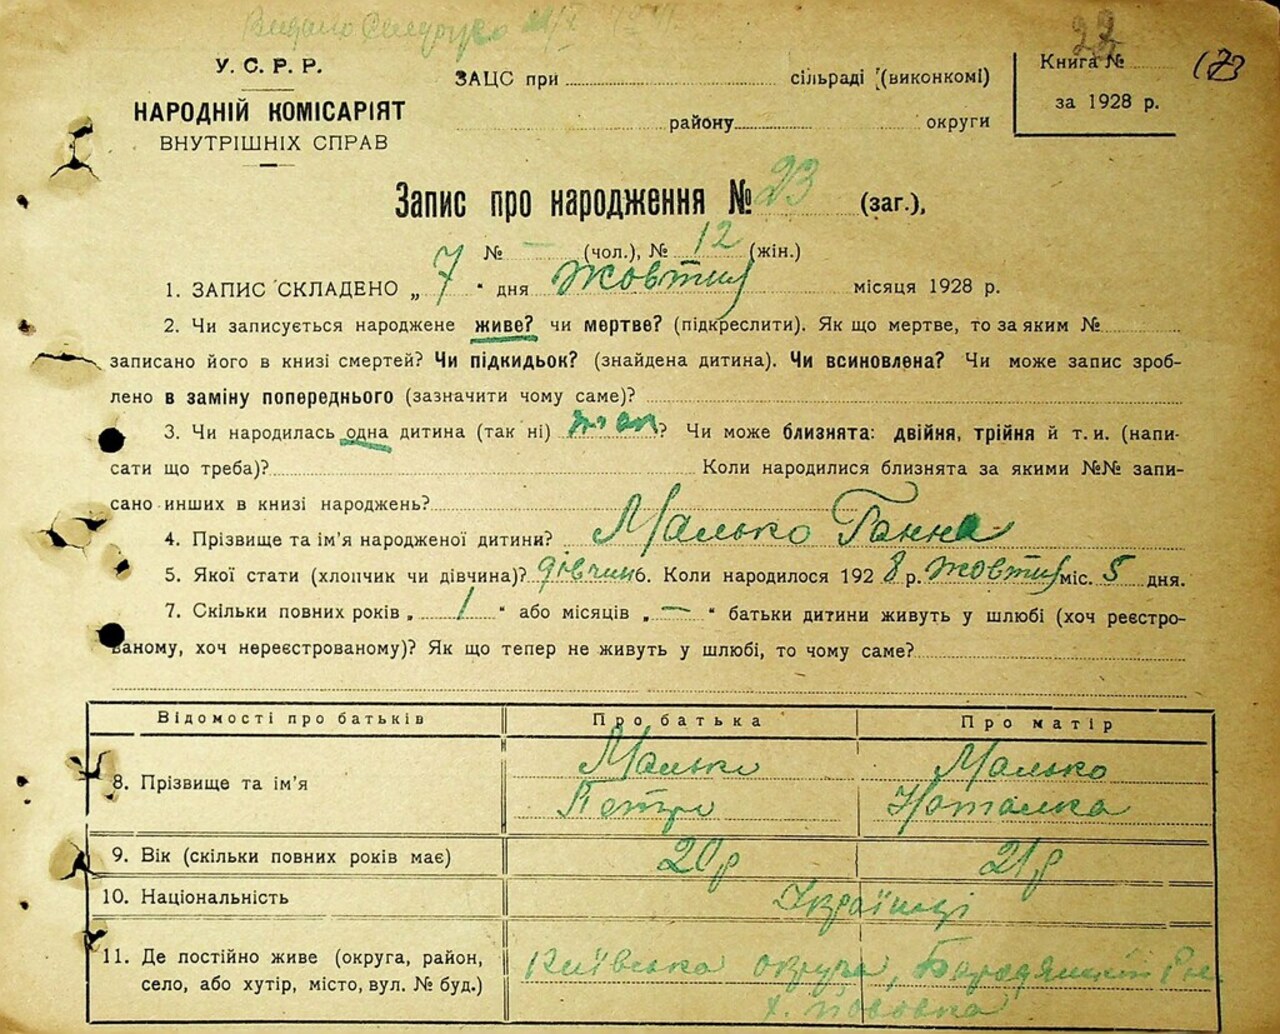 Видано
22
У. С. Р. Р.
НАРОДНІЙ КОМІСАРІЯТ
ВНУТРІШНІХ СПРАВ
ЗАЦС при сільраді (виконкомі)
району округи
Книга №
за 1928 р.
Запис про народження № 23 (заг.),
№ — (чол.), № 12 (жін.)
1. ЗАПИС СКЛАДЕНО „ 7 “ дня жовтня місяця 1928 р.
2. Чи записується народжене живе? чи мертве? (підкреслити). Як що мертве, то за яким №
записано його в книзі смертей? Чи підкидьок? (знайдена дитина). Чи всиновлена? Чи може запис зроб-
лено в заміну попереднього (зазначити чому саме)?
3. Чи народилась одна дитина (так ні) ? Чи може близнята: двійня, трійня й т. и. (напи-
сати що треба)? Коли народилися близнята за якими №№ запи-
сано инших в книзі народжень?
4. Прізвище та ім'я народженої дитини? Малько Ганна
5. Якої стати (хлопчик чи дівчина)? дівчин 6. Коли народилося 192 8 р. жовтня міс. 5 дня.
7. Скільки повних років „ 1 “ або місяців „ — “ батьки дитини живуть у шлюбі (хоч реєстро-
ваному, хоч нереєстрованому)? Як що тепер не живуть у шлюбі, то чому саме?
Відомості про батьків Про батька Про матір
8. Прізвище та ім'я Малько Малько
Петро Наталка
9. Вік (скільки повних років має) 20 р 21 р
10. Національність Українці
11. Де постійно живе (округа, район,
село, або хутір, місто, вул. № буд.)
Київська округа, Бородянський Р-н
х.